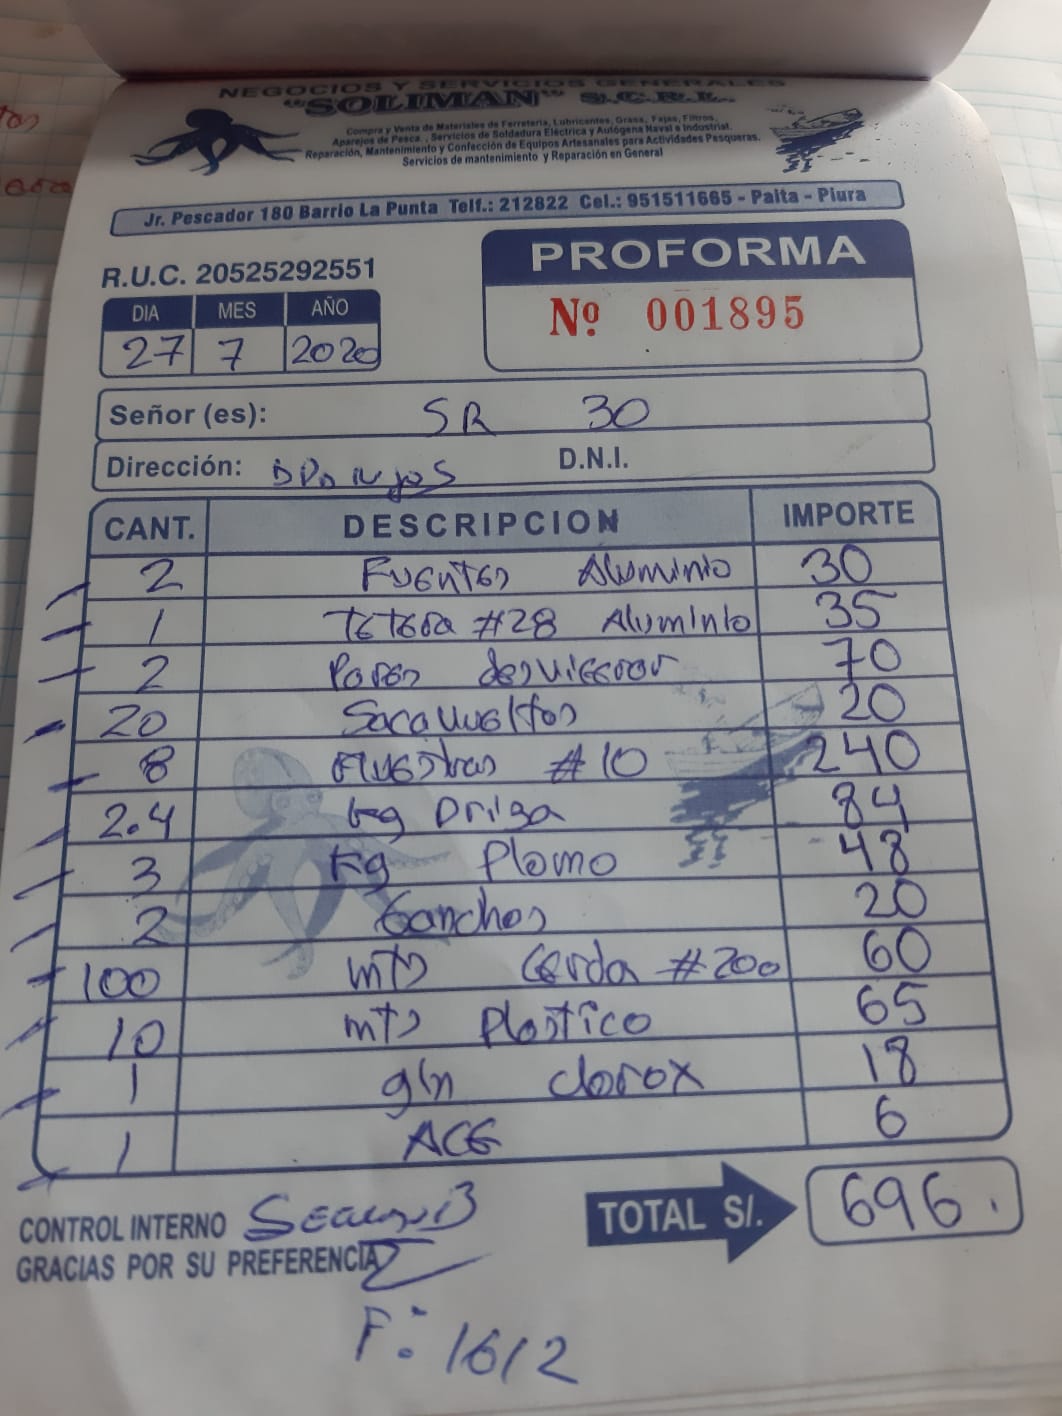 NEGOCIOS Y SERVICIOS GENERALES
"SOLIMAN" S.C.R.L.
Compra y Venta de Materiales de Ferretería, Lubricantes, Grasa, Fajas, Filtros,
Aparejos de Pesca, Servicios de Soldadura Eléctrica y Autógena Naval e Industrial.
Reparación, Mantenimiento y Confección de Equipos Artesanales para Actividades Pesqueras.
Servicios de mantenimiento y Reparación en General
Jr. Pescador 180 Barrio La Punta Telf.: 212822 Cel.: 951511665 - Paita - Piura
R.U.C. 20525292551
PROFORMA
Nº 001895
DIA MES AÑO
27 7 2020
Señor (es): SR 30
Dirección: D.N.I.
CANT. DESCRIPCION IMPORTE
2 Fuentes Aluminio 30
1 Tetera #28 Aluminio 35
2 70
20 Sacavueltas 20
8 #10 240
2.4 kg Driza 84
3 kg Plomo 48
2 Ganchos 20
100 mts Cerda #200 60
10 mts Plastico 65
1 gln clorox 18
1 ACE 6
TOTAL S/. 696.
CONTROL INTERNO
GRACIAS POR SU PREFERENCIA
F: 1612